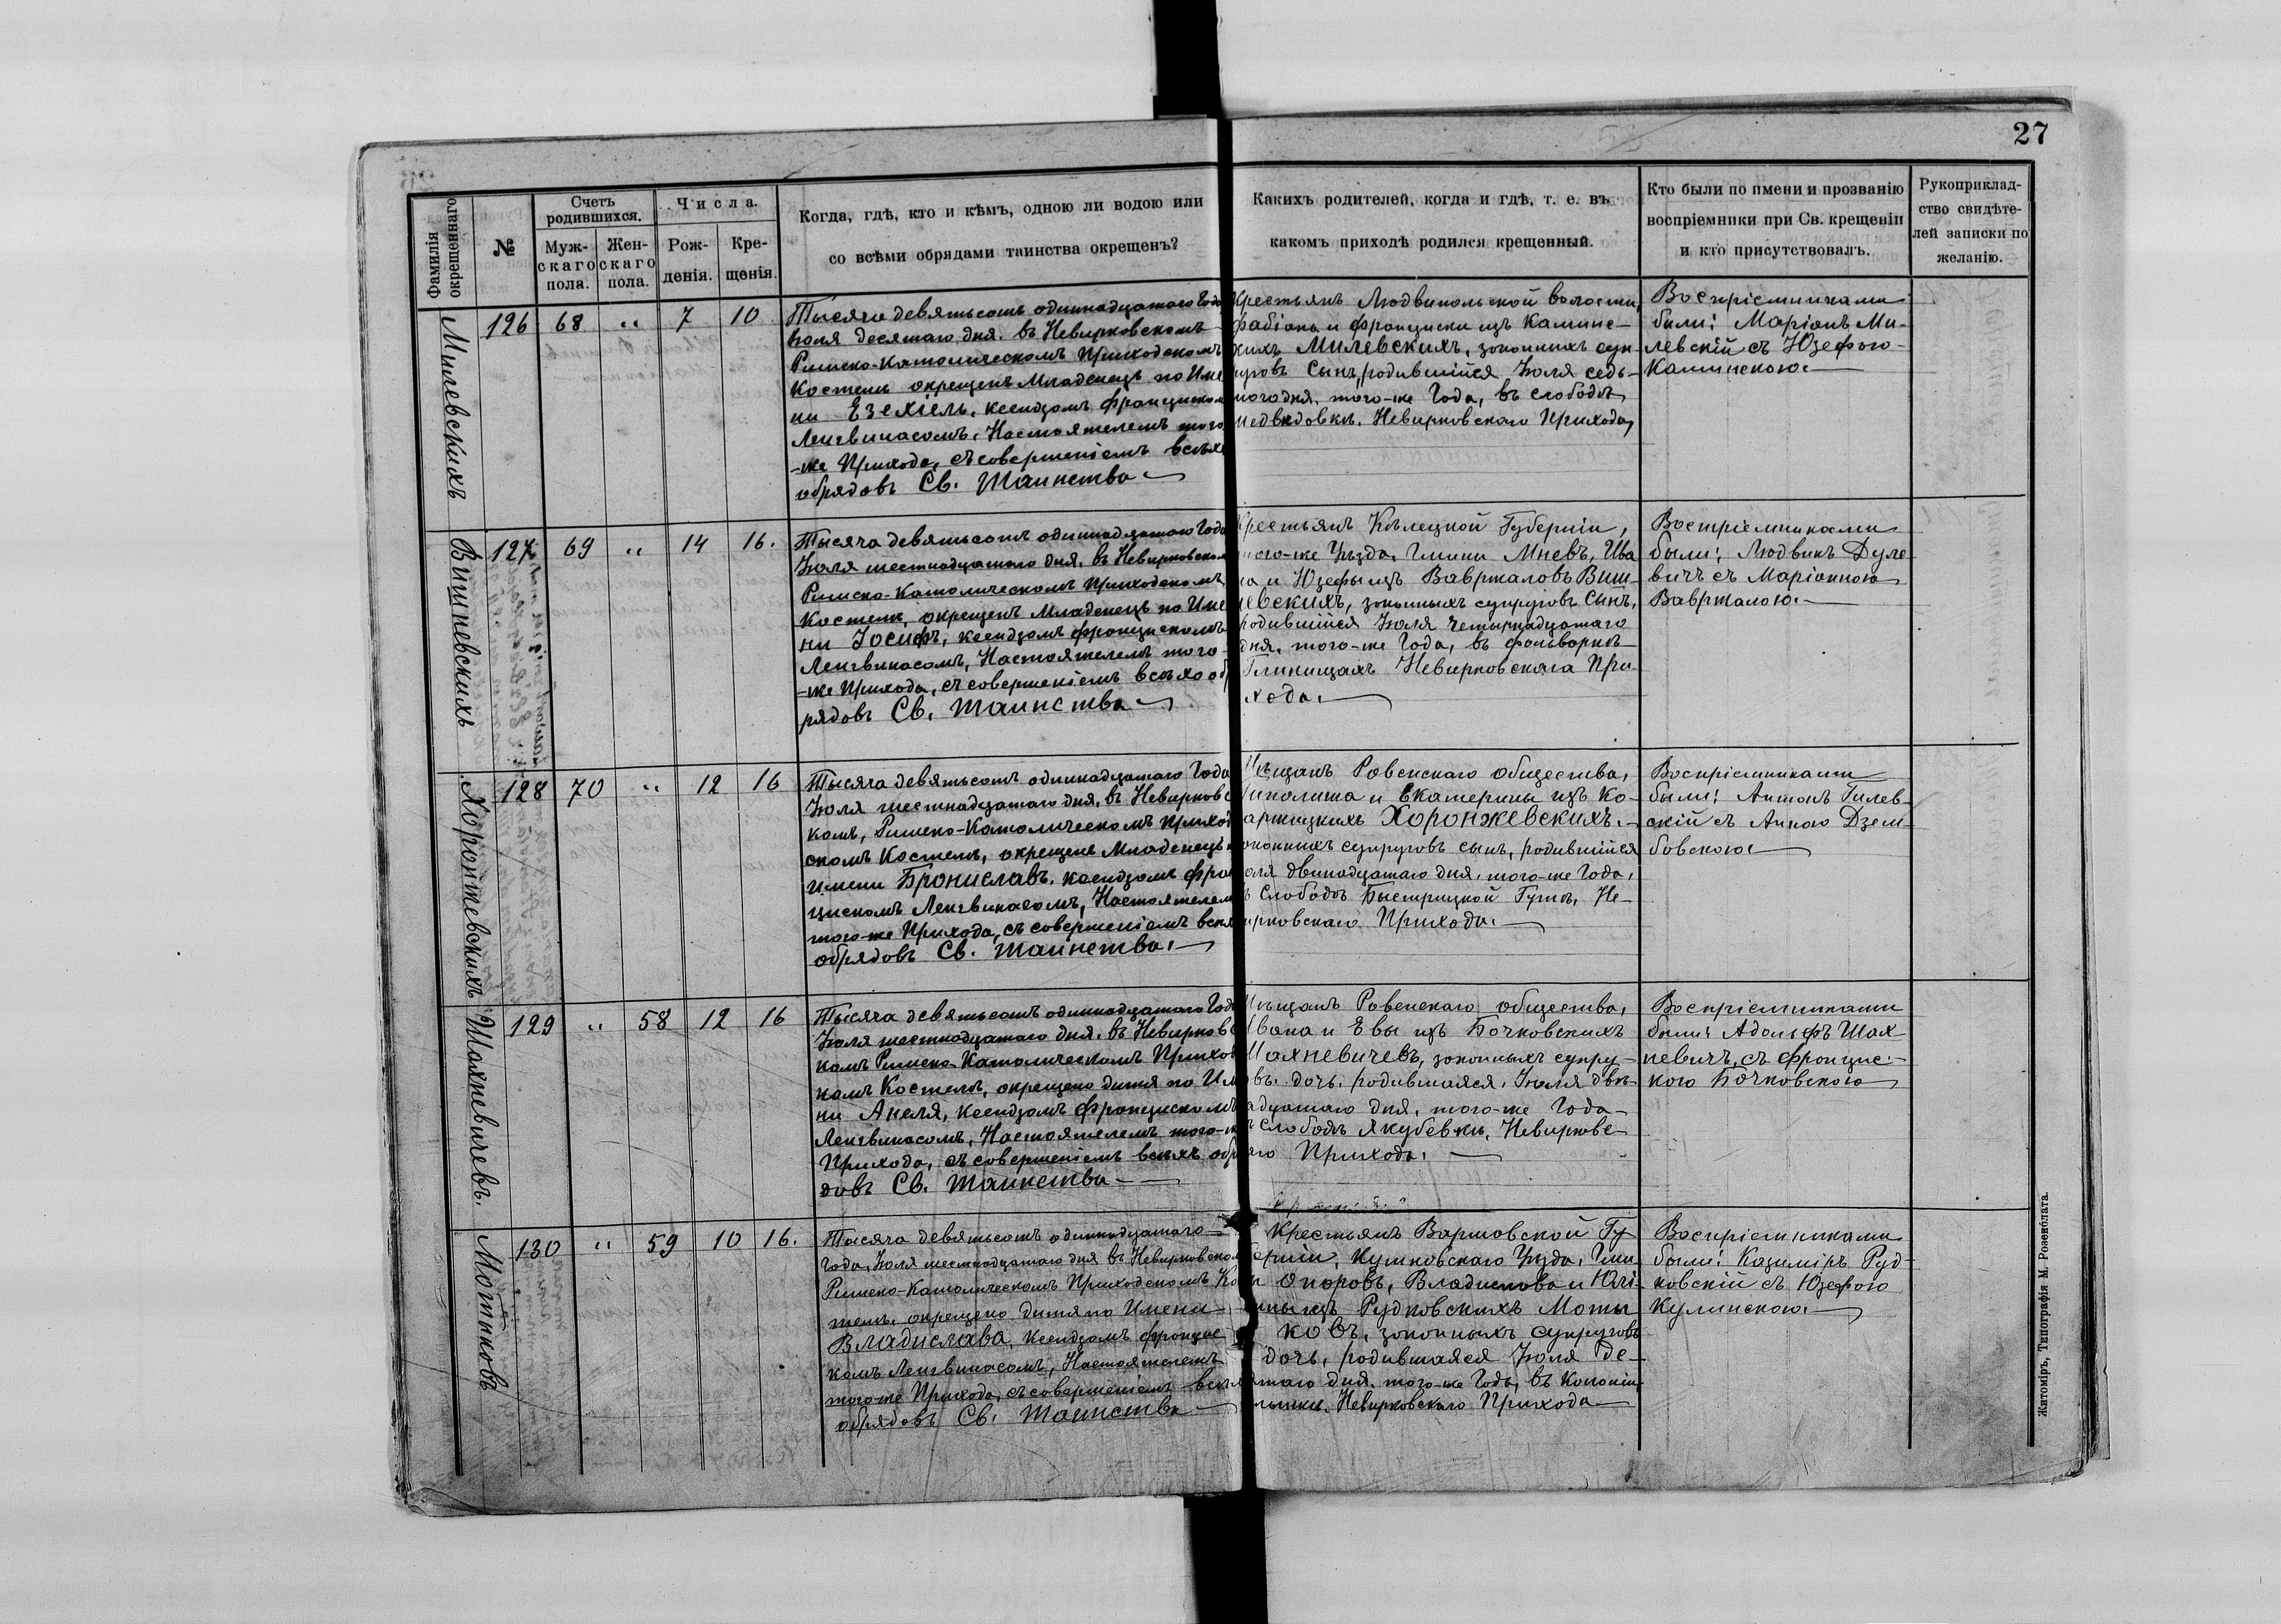 27
Фамилія окрещеннаго
№
Счетъ родившихся.
Муж-скаго пола.
Жен-скаго пола.
Числа.
Рож-денія.
Кре-щенія.
Когда, гдѣ, кто и кѣмъ, одною ли водою или
со всѣми обрядами таинства окрещенъ?
Какихъ родителей, когда и гдѣ, т. е. въ
какомъ приходѣ родился крещенный.
Кто были по имени и прозванію
воспріемники при Св. крещеніи
и кто присутствовалъ.
Рукоприклад-
ство свидѣте-
лей записки по
желанію.
Милевскихъ
126 68 „ 7 10
Тысяча девятьсотъ одиннадцатаго Года
Іюля десятаго дня. въ Невирковскомъ
Римско-Католическомъ Приходскомъ
Костелѣ окрещенъ Младенецъ по Име
ни Езехіель, ксендзомъ Францискомъ
Ленгвинасомъ, Настоятелемъ того
-же Прихода, съ совершеніемъ всѣхъ
обрядовъ Св. Таинства
Крестьянъ Людвипольской волости,
Фабіана и Франциски изъ Камин-
скихъ Милевскихъ, законныхъ суп-
руговъ Сынъ, родившійся Іюля седь-
маго дня, того-же Года, въ слободѣ
Медвѣдовкѣ, Невирковскаго Прихода,
Воспріемниками
были: Маріанъ Ми-
левскій съ Юзефою
Каминскою.
Вишневскихъ
127 69 „ 14 16.
Тысяча девятьсотъ одиннадцатаго Года
Іюля шестнадцатаго дня, въ Невирковском
Римско-Католическомъ Приходскомъ
Костелѣ, окрещенъ Младенецъ по Име
ни Іосифъ, ксендзомъ Францискомъ
Ленгвинасомъ, Настоятелемъ того-
-же Прихода, съ совершеніемъ всѣхъ об
рядовъ Св. Таинства
Крестьянъ Кѣлецкой Губерніи,
того-же Уѣзда, Гмины Мневъ, Ива
на и Юзефы изъ Вавржаловъ Виш-
невскихъ, законныхъ супруговъ Сынъ,
родившійся Іюля четырнадцатаго
дня, того-же Года, въ фольваркѣ
Глиницахъ Невирковскаго При-
хода.
Воспріемниками
были: Людвикъ Дуле-
вичъ съ Маріанною
Вавржалою.
Хоронжевскихъ
128 70 „ 12 16
Тысяча девятьсотъ одиннадцатаго Года
Іюля шестнадцатаго дня, въ Невирковс
комъ, Римско-Католическомъ Приход
скомъ Костелѣ, окрещенъ Младенецъ п
имени Брониславъ. ксендзомъ Фран
цискомъ Ленгвинасомъ, Настоятелем
того-же Прихода, съ совершеніемъ всѣх
обрядовъ Св. Таинства.
Мѣщанъ Ровенскаго общества,
Гиполита и Екатерины изъ Ко-
Хоронжевскихъ.
законныхъ супруговъ сынъ, родившійся
Іюля двѣнадцатаго дня, того-же Года,
въ Слободѣ Быстрицкой Гутѣ, Не-
вирковскаго Прихода.
Воспріемниками
были: Антонъ Гилев-
скій съ Анною Дзем-
бовскою
Шахневичевъ.
129 „ 58 12 16
Тысяча девятьсотъ одиннадцатаго Года
Іюля шестнадцатаго дня. въ Невирковс
комъ Римско-Католическомъ Приходс
комъ Костелѣ, окрещено дитя по Име
ни Анеля, ксендзомъ Францискомъ
Ленгвинасомъ, Настоятелемъ того-же
Прихода, съ совершеніемъ всѣхъ обря
довъ Св. Таинства
Мѣщанъ Ровенскаго общества,
Ивана и Евы изъ Бочковскихъ
Шахневичевъ, законныхъ супру-
говъ дочь, родившаяся, Іюля двѣ-
надцатаго дня, того-же Года
въ слободѣ Якубевкѣ, Невирковс
каго Прихода.
Воспріемниками
были: Адольфъ Шах-
невичъ съ Францис-
кою Бочковскою
Мотыковъ
130 „ 59 10 16.
Тысяча девятьсотъ одиннадцатаго
Года, Іюля шестнадцатаго дня въ Невирковском
Римско-Католическомъ Приходскомъ Кос
телѣ, окрещено дитя по Имени
Владислава, ксендзомъ Францис
комъ Ленгвинасомъ, Настоятелемъ
того же Прихода, съ совершеніемъ всѣх
обрядовъ Св. Таинства
Крестьянъ Варшовской Гу
берніи, Кутновскаго Уѣзда, Гми
ны Опоровъ, Владислава и Юлі
анны изъ Рудковскихъ Моты
ковъ, законныхъ супруговъ
дочь, родившаяся Іюля де-
сятаго дня, того-же Года, въ Колоніи
Невирковскаго Прихода
Воспріемниками
были: Казиміръ Руд-
ковскій съ Юзефою
Кулинскою.
Житоміръ, Типографія М. Розенблата.